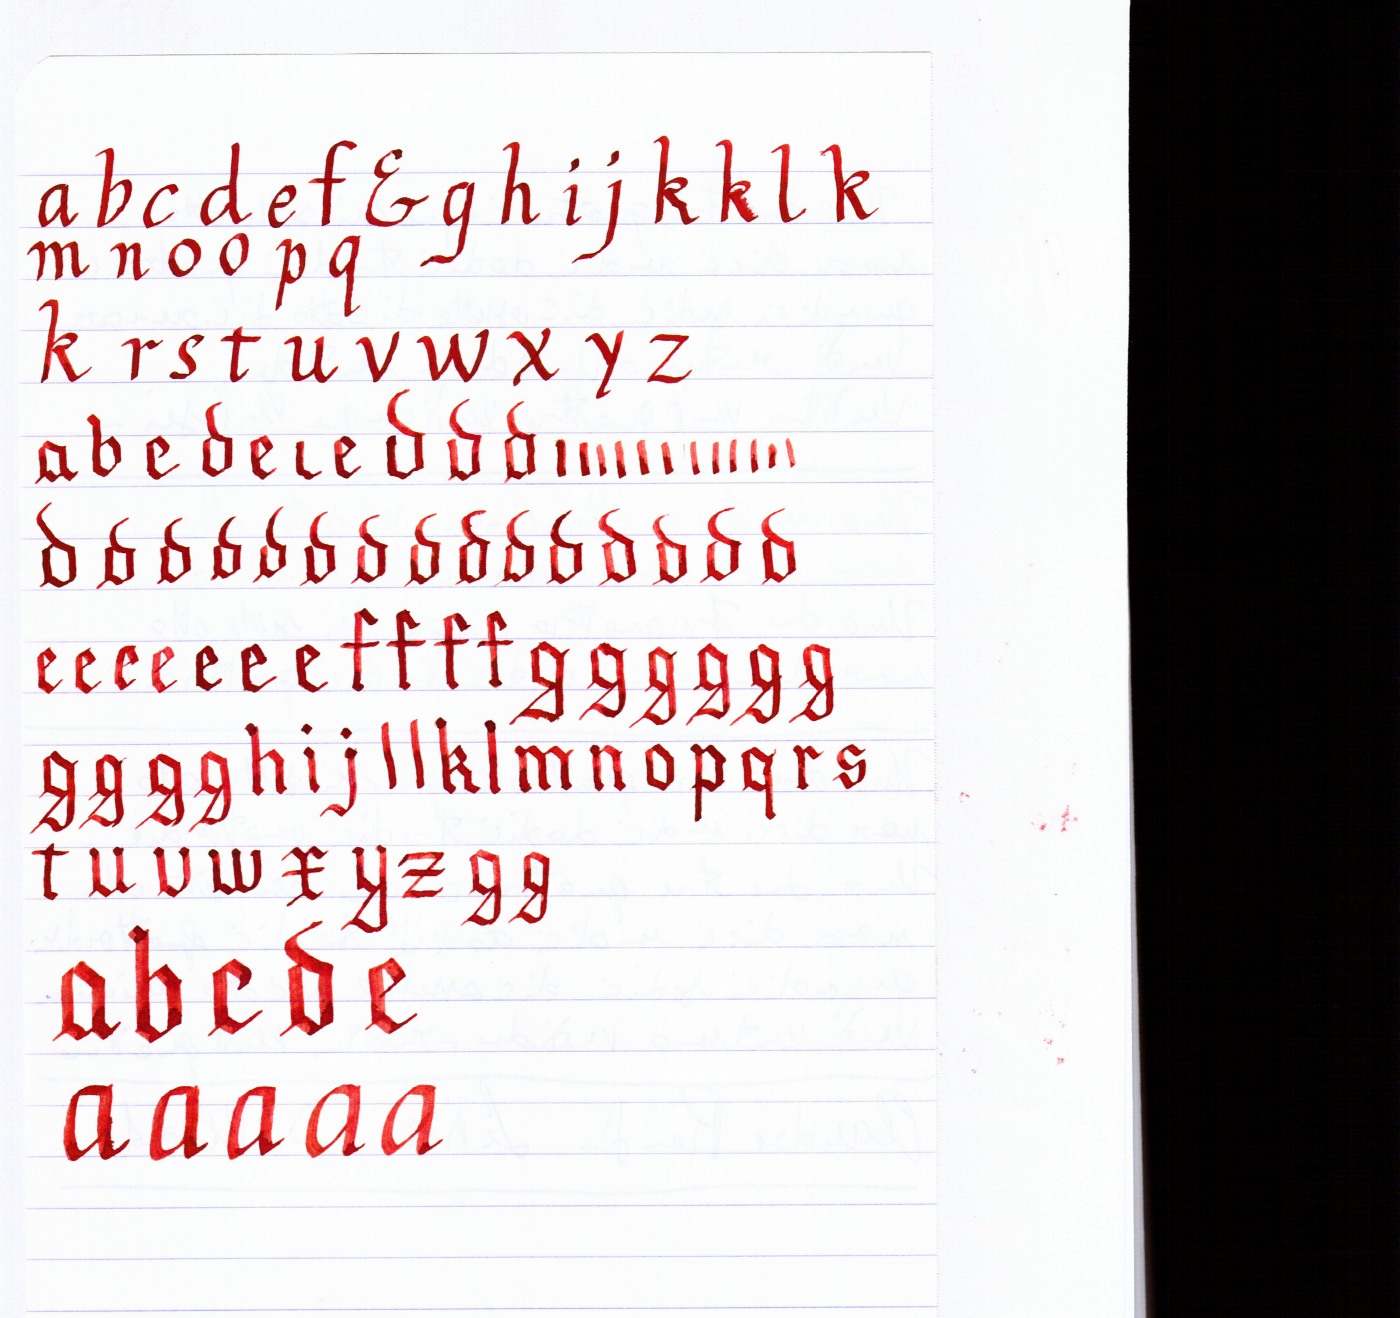 a b c d e f & g h i j k k l k
m n o o p q
k r s t u v w x y z
a b c d e ı e d d d ı ı ı ı ı ı ı ı ı ı ı ı ı ı ı
d d d d d d d d d d d d d d d
e e e e e e e f f f f g g g g g g
g g g g h i j l l k l m n o p q r s
t u v w x y z g g
a b c d e
a a a a a